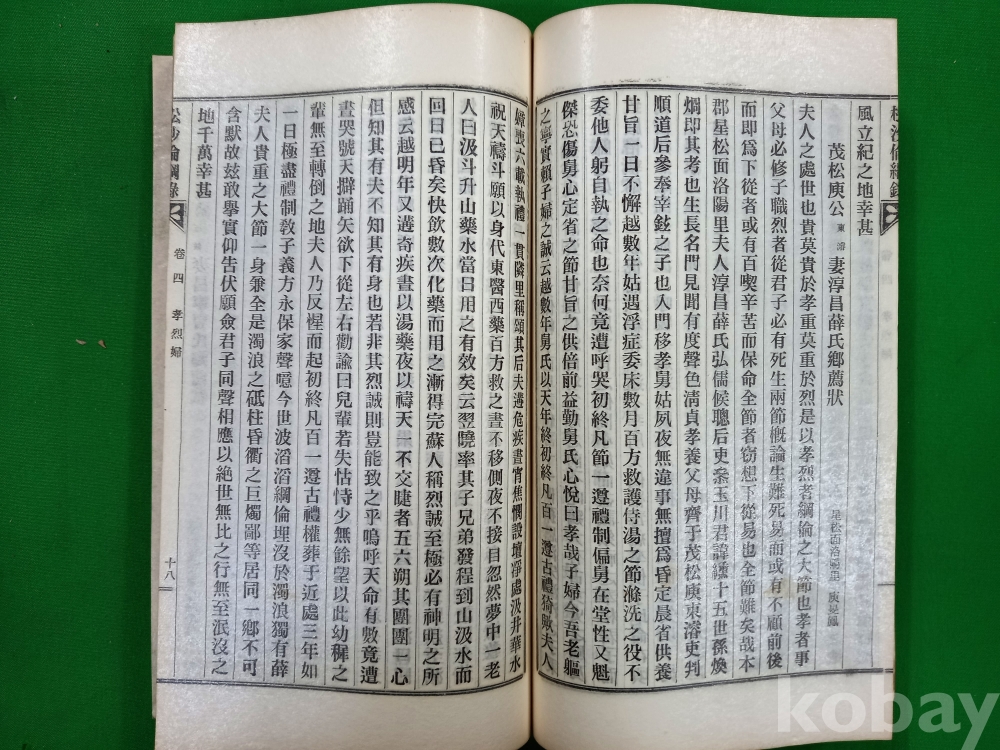 風立紀之地幸甚
茂松庾公 東溶 妻淳昌薛氏鄕薦狀
夫人之處世也貴莫貴於孝重莫重於烈是以孝烈者綱倫之大節也孝者事
父母必修子職烈者從君子必有死生兩節槪論生難死易而或有不顧前後
而即爲下從者或有百喫辛苦而保命全節者窃想下從易也全節難矣哉本
郡星松面洛陽里夫人淳昌薛氏弘儒候聰后吏叅玉川君諱繲十五世孫煥
燗即其考也生長名門見聞有度聲色淸貞孝養父母齊于茂松庾東溶吏判
順道后參奉宰鉉之子也入門移孝舅姑夙夜無違事無擅爲昏定晨省供養
甘旨一日不懈越數年姑遇浮症委床數月百方救護侍湯之節滌洗之役不
委他人躬自執之命也奈何竟遭呼哭初終凡節一遵禮制偏舅在堂性又魁
傑恐傷舅心定省之節甘旨之供倍前益勤舅氏心悅曰孝哉子婦今吾老軀
之寧實賴子婦之誠云越數年舅氏以天年終初終凡百一遵古禮猗歟夫人
媤喪六載執禮一貫隣里稱頌其后夫遘危疾晝宵焦憫設壇凈處汲井華水
祝天禱斗願以身代東醫西藥百方救之晝不移側夜不接目忽然夢中一老
人曰汲斗升山藥水當日用之有效矣云翌曉率其子兄弟發程到山汲水而
回日已昏矣快飮數次化藥而用之漸得完蘇人稱烈誠至極必有神明之所
感云越明年又遘奇疾晝以湯藥夜以禱天一不交睫者五六朔其團團一心
但知其有夫不知其有身也若非其烈誠則豈能致之乎嗚呼天命有數竟遭
晝哭號天擗踊矢欲下從左右勸諭曰兒輩若失怙恃少無餘望以此幼穉之
輩無至轉倒之地夫人乃反惺而起初終凡百一遵古禮權葬于近處三年如
一日極盡禮制敎子義方永保家聲噫今世波滔滔綱倫埋沒於濁浪獨有薛
夫人貴重之大節一身兼全是濁浪之砥柱昏衢之巨燭鄙等居同一鄕不可
含默故玆敢擧實仰告伏願僉君子同聲相應以絶世無比之行無至泯沒之
地千萬幸甚
松沙倫綱錄 卷四 孝烈婦 十八
kobay